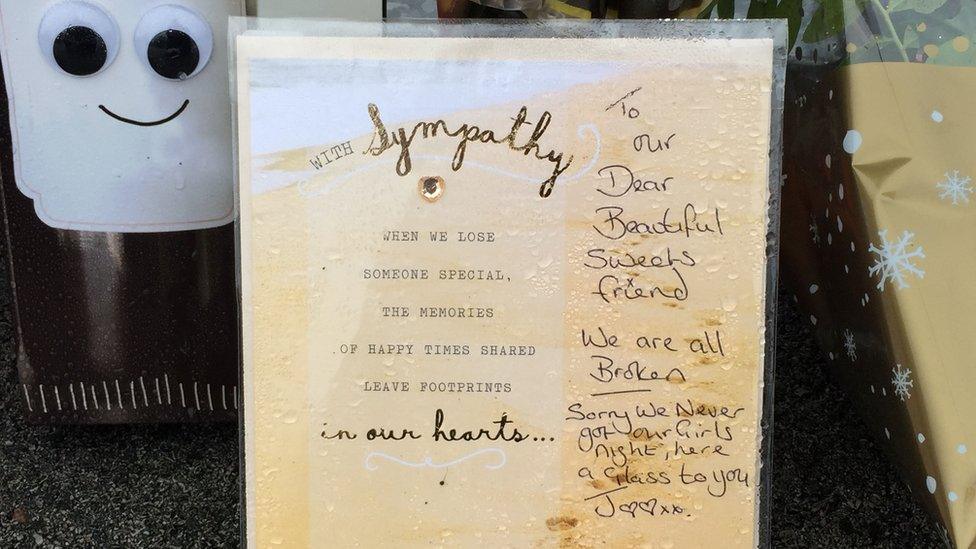 WITH Sympathy
WHEN WE LOSE
SOMEONE SPECIAL,
THE MEMORIES
OF HAPPY TIMES SHARED
LEAVE FOOTPRINTS
in our hearts...
To
our
Dear
Beautiful
Sweets
friend
We are all
Broken
Sorry We Never
got our Girls
Night, here
a Glass to you
J♡♡xx.